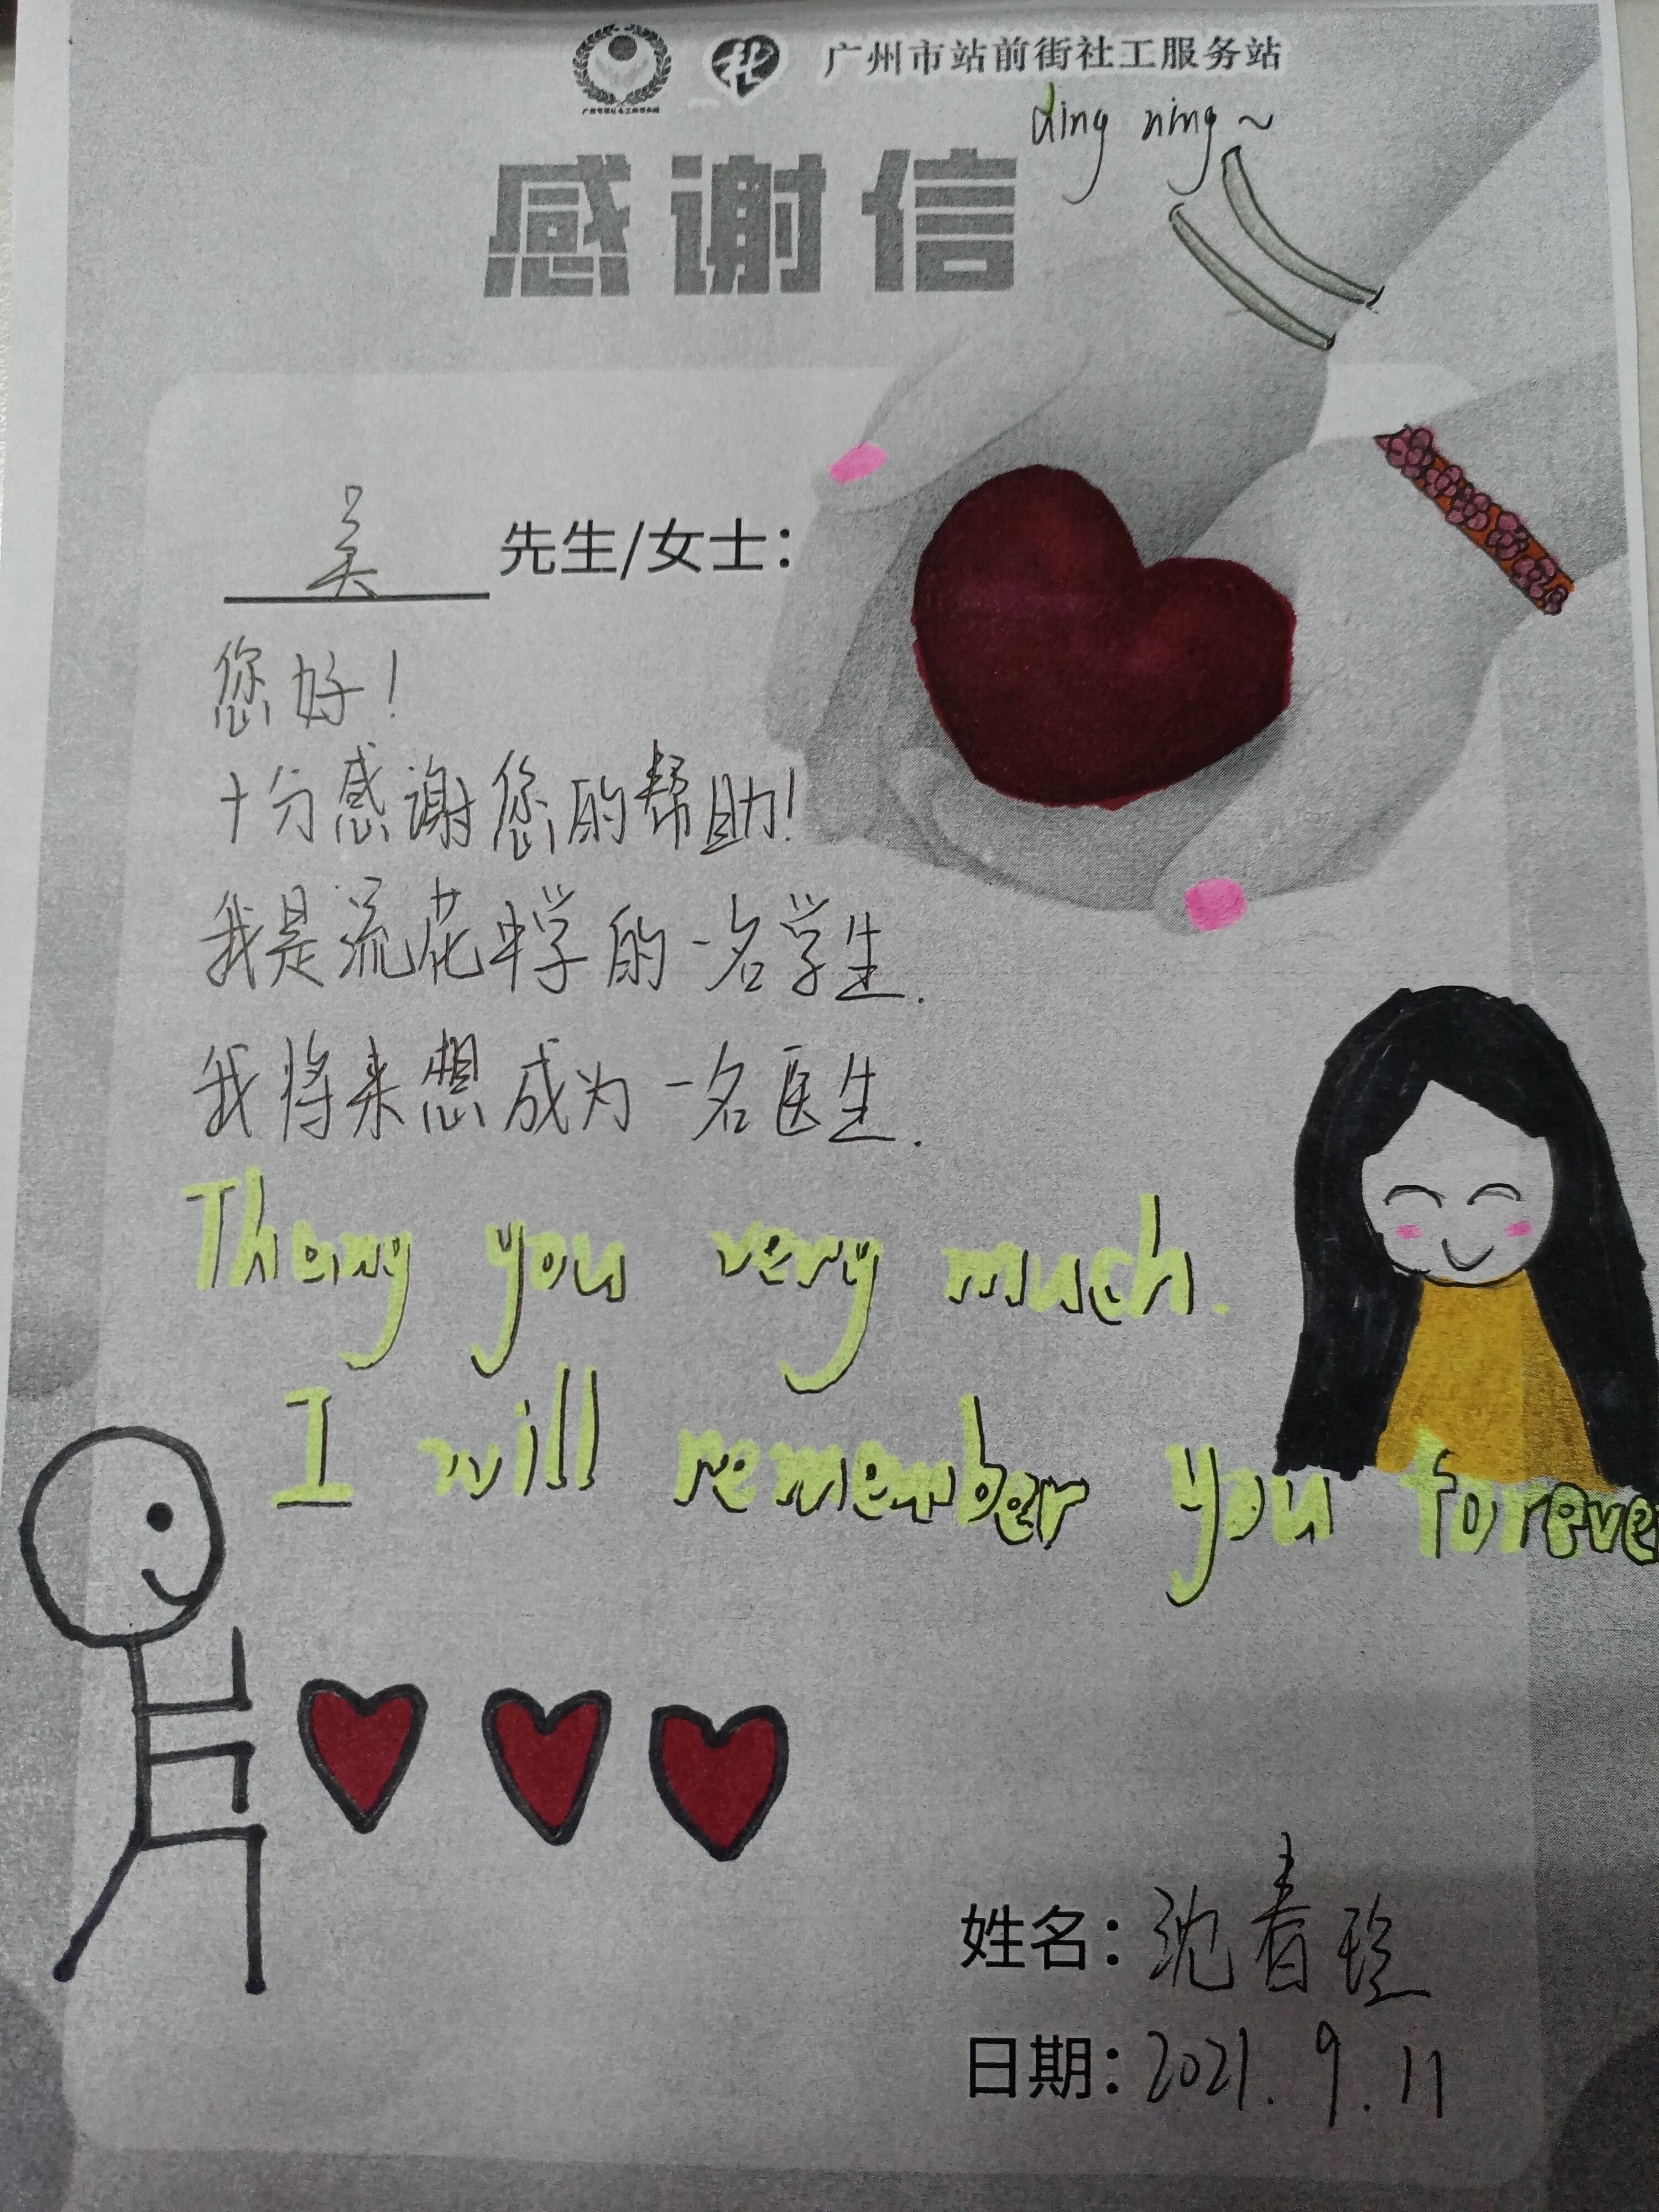 广州市站前街社工服务站
ding ning~
感谢信
吴 先生/女士：
您好！
十分感谢您的帮助！
我是流花中学的一名学生.
我将来想成为一名医生.
Thany you very much.
I will remember you foreve
姓名：沈春玲
日期：2021.9.11